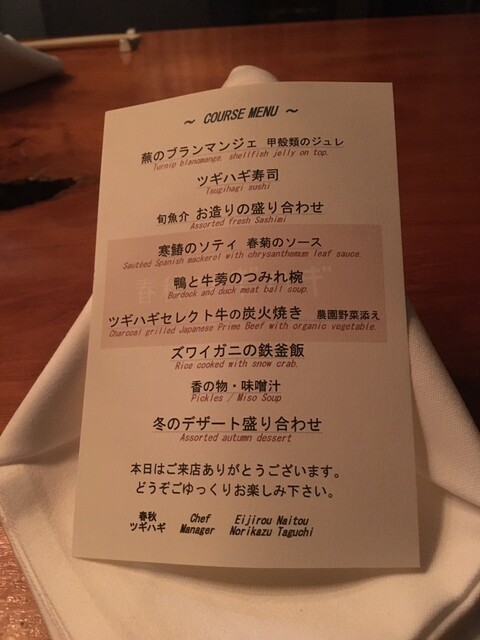 ～ COURSE MENU ～
蕪のブランマンジェ 甲殻類のジュレ
Turnip blancmange, shellfish jelly on top.
ツギハギ寿司
Tsugihagi sushi
旬魚介 お造りの盛り合わせ
Assorted fresh Sashimi
寒鰆のソテイ 春菊のソース
Sautéed Spanish mackerel with chrysanthemum leaf sauce.
鴨と牛蒡のつみれ椀
Burdock and duck meat ball soup.
ツギハギセレクト牛の炭火焼き 農園野菜添え
Charcoal grilled Japanese Prime Beef with organic vegetable.
ズワイガニの鉄釜飯
Rice cooked with snow crab.
香の物・味噌汁
Pickles / Miso Soup
冬のデザート盛り合わせ
Assorted autumn dessert
本日はご来店ありがとうございます。
どうぞごゆっくりお楽しみ下さい。
春秋 Chef Eijirou Naitou
ツギハギ Manager Norikazu Taguchi